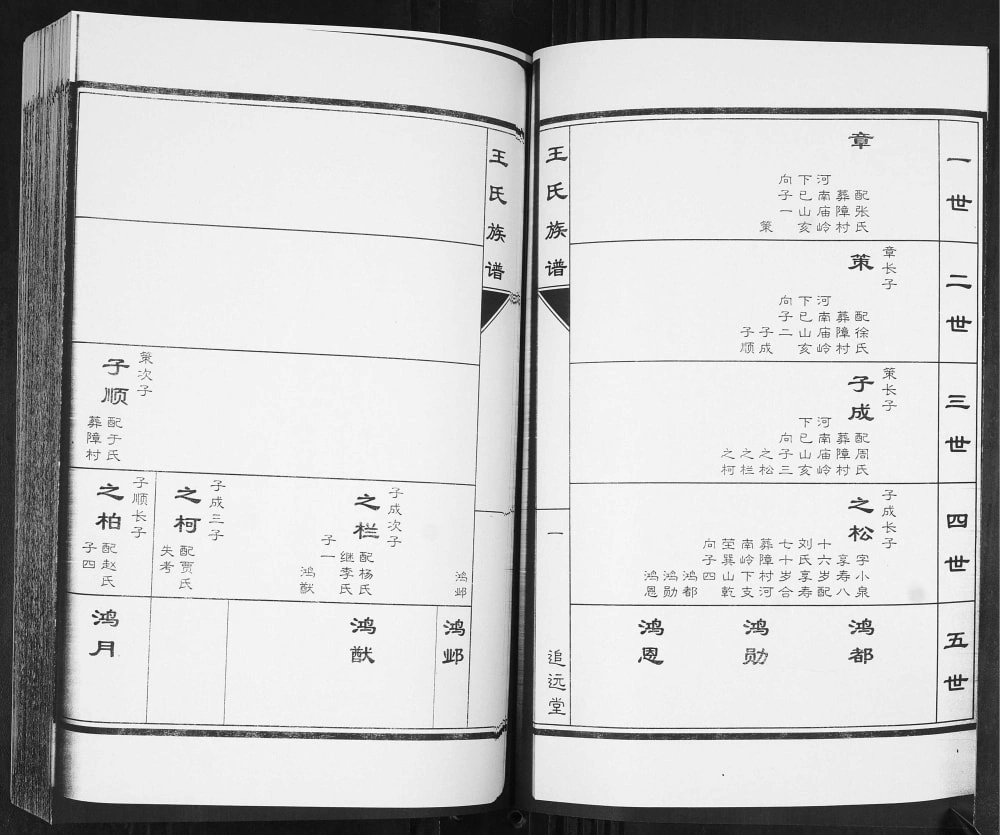 一世
章
配张氏
葬障村
河南庙岭
下巳山亥
向子一
策
二世
章长子
策
配徐氏
葬障村
河南庙岭
下巳山亥
向子二
子成
子顺
三世
策长子
子成
配周氏
葬障村
河南庙岭
下巳山亥
向子三
之松
之栏
之柯
四世
子成长子
之松
字小泉
享寿八
十六岁配
刘氏享寿
七十岁合
葬障村河
南岭下支
茔巽山乾
向子四
鸿都
鸿勋
鸿恩
五世
鸿都
鸿勋
鸿恩
王氏族谱
一
追远堂
王氏族谱
策次子
子顺
配于氏
葬障村
鸿邺
子成次子
之栏
配杨氏
继李氏
子一
鸿猷
子成三子
之柯
配贾氏
失考
子顺长子
之柏
配赵氏
子四
鸿邺
鸿猷
鸿月